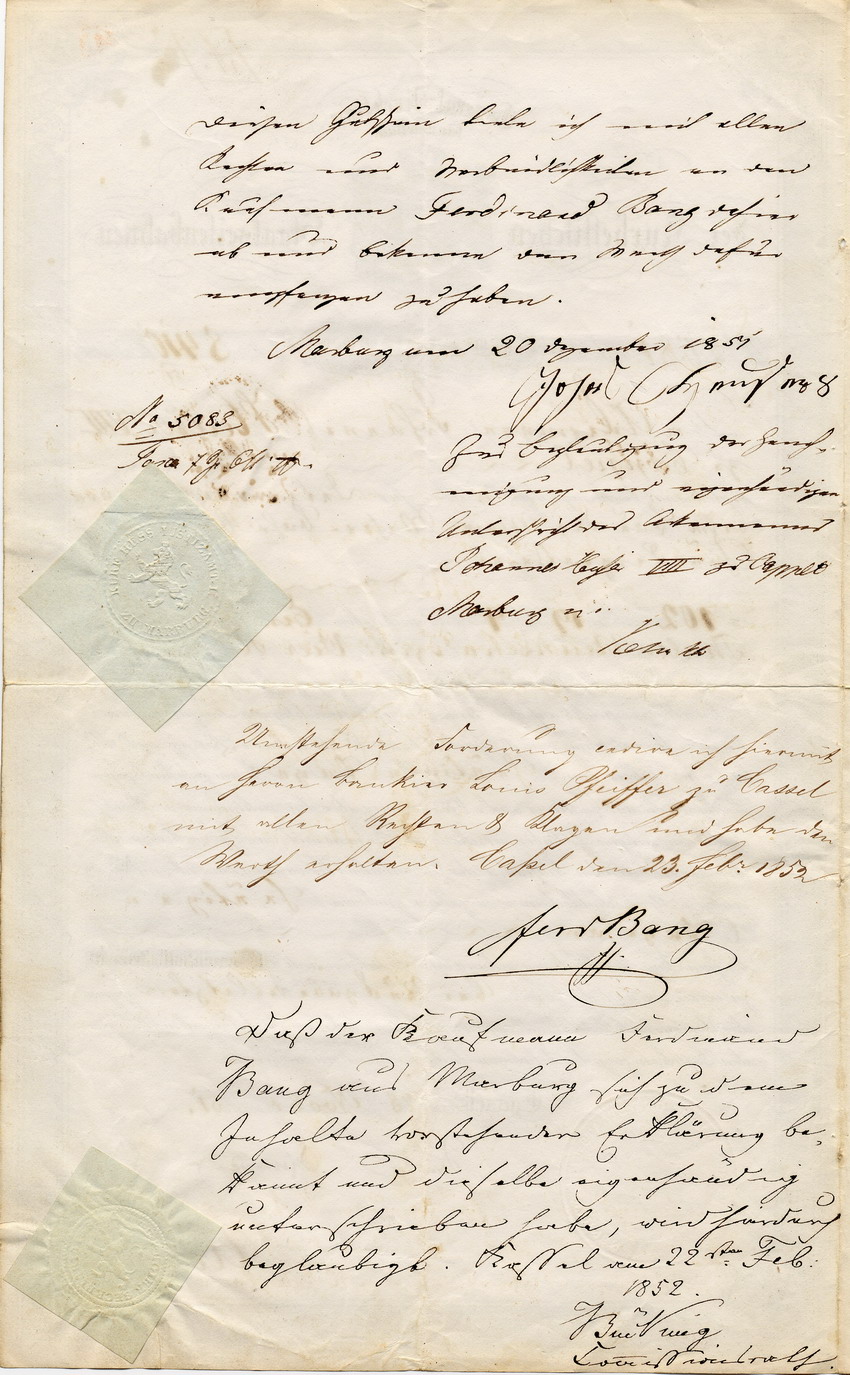 diesen Gutschein trete ich mit allen
Rechten und Verbindlichkeiten an den
Kaufmann Ferdinand Bang dahier
ab und bekenne den Werth dafür
empfangen zu haben.
Marburg am 20 Dezember 1851
Johs
No 5083
Zur Beglaubigung der Geneh-
migung und eigenhändigen
Unterschrift des Ackermanns
Johannes VIII zu Cappel
Marburg
KURHESS
ZU MARBURG
Umstehende Forderung cedire ich hiermit
an Herrn Bankier Louis Pfeiffer zu Cassel
mit allen Rechten & Klagen und habe den
Werth erhalten. Cassel den 23. Febr. 1852
Ferd Bang
Daß der Kaufmann Ferdinand
Bang aus Marburg sich zu dem
Inhalte vorstehender Erklärung be-
kannt und dieselbe eigenhändig
unterschrieben habe, wird hierdurch
beglaubigt. Kassel am 22sten Feb:
1852.
Commissionsrath.